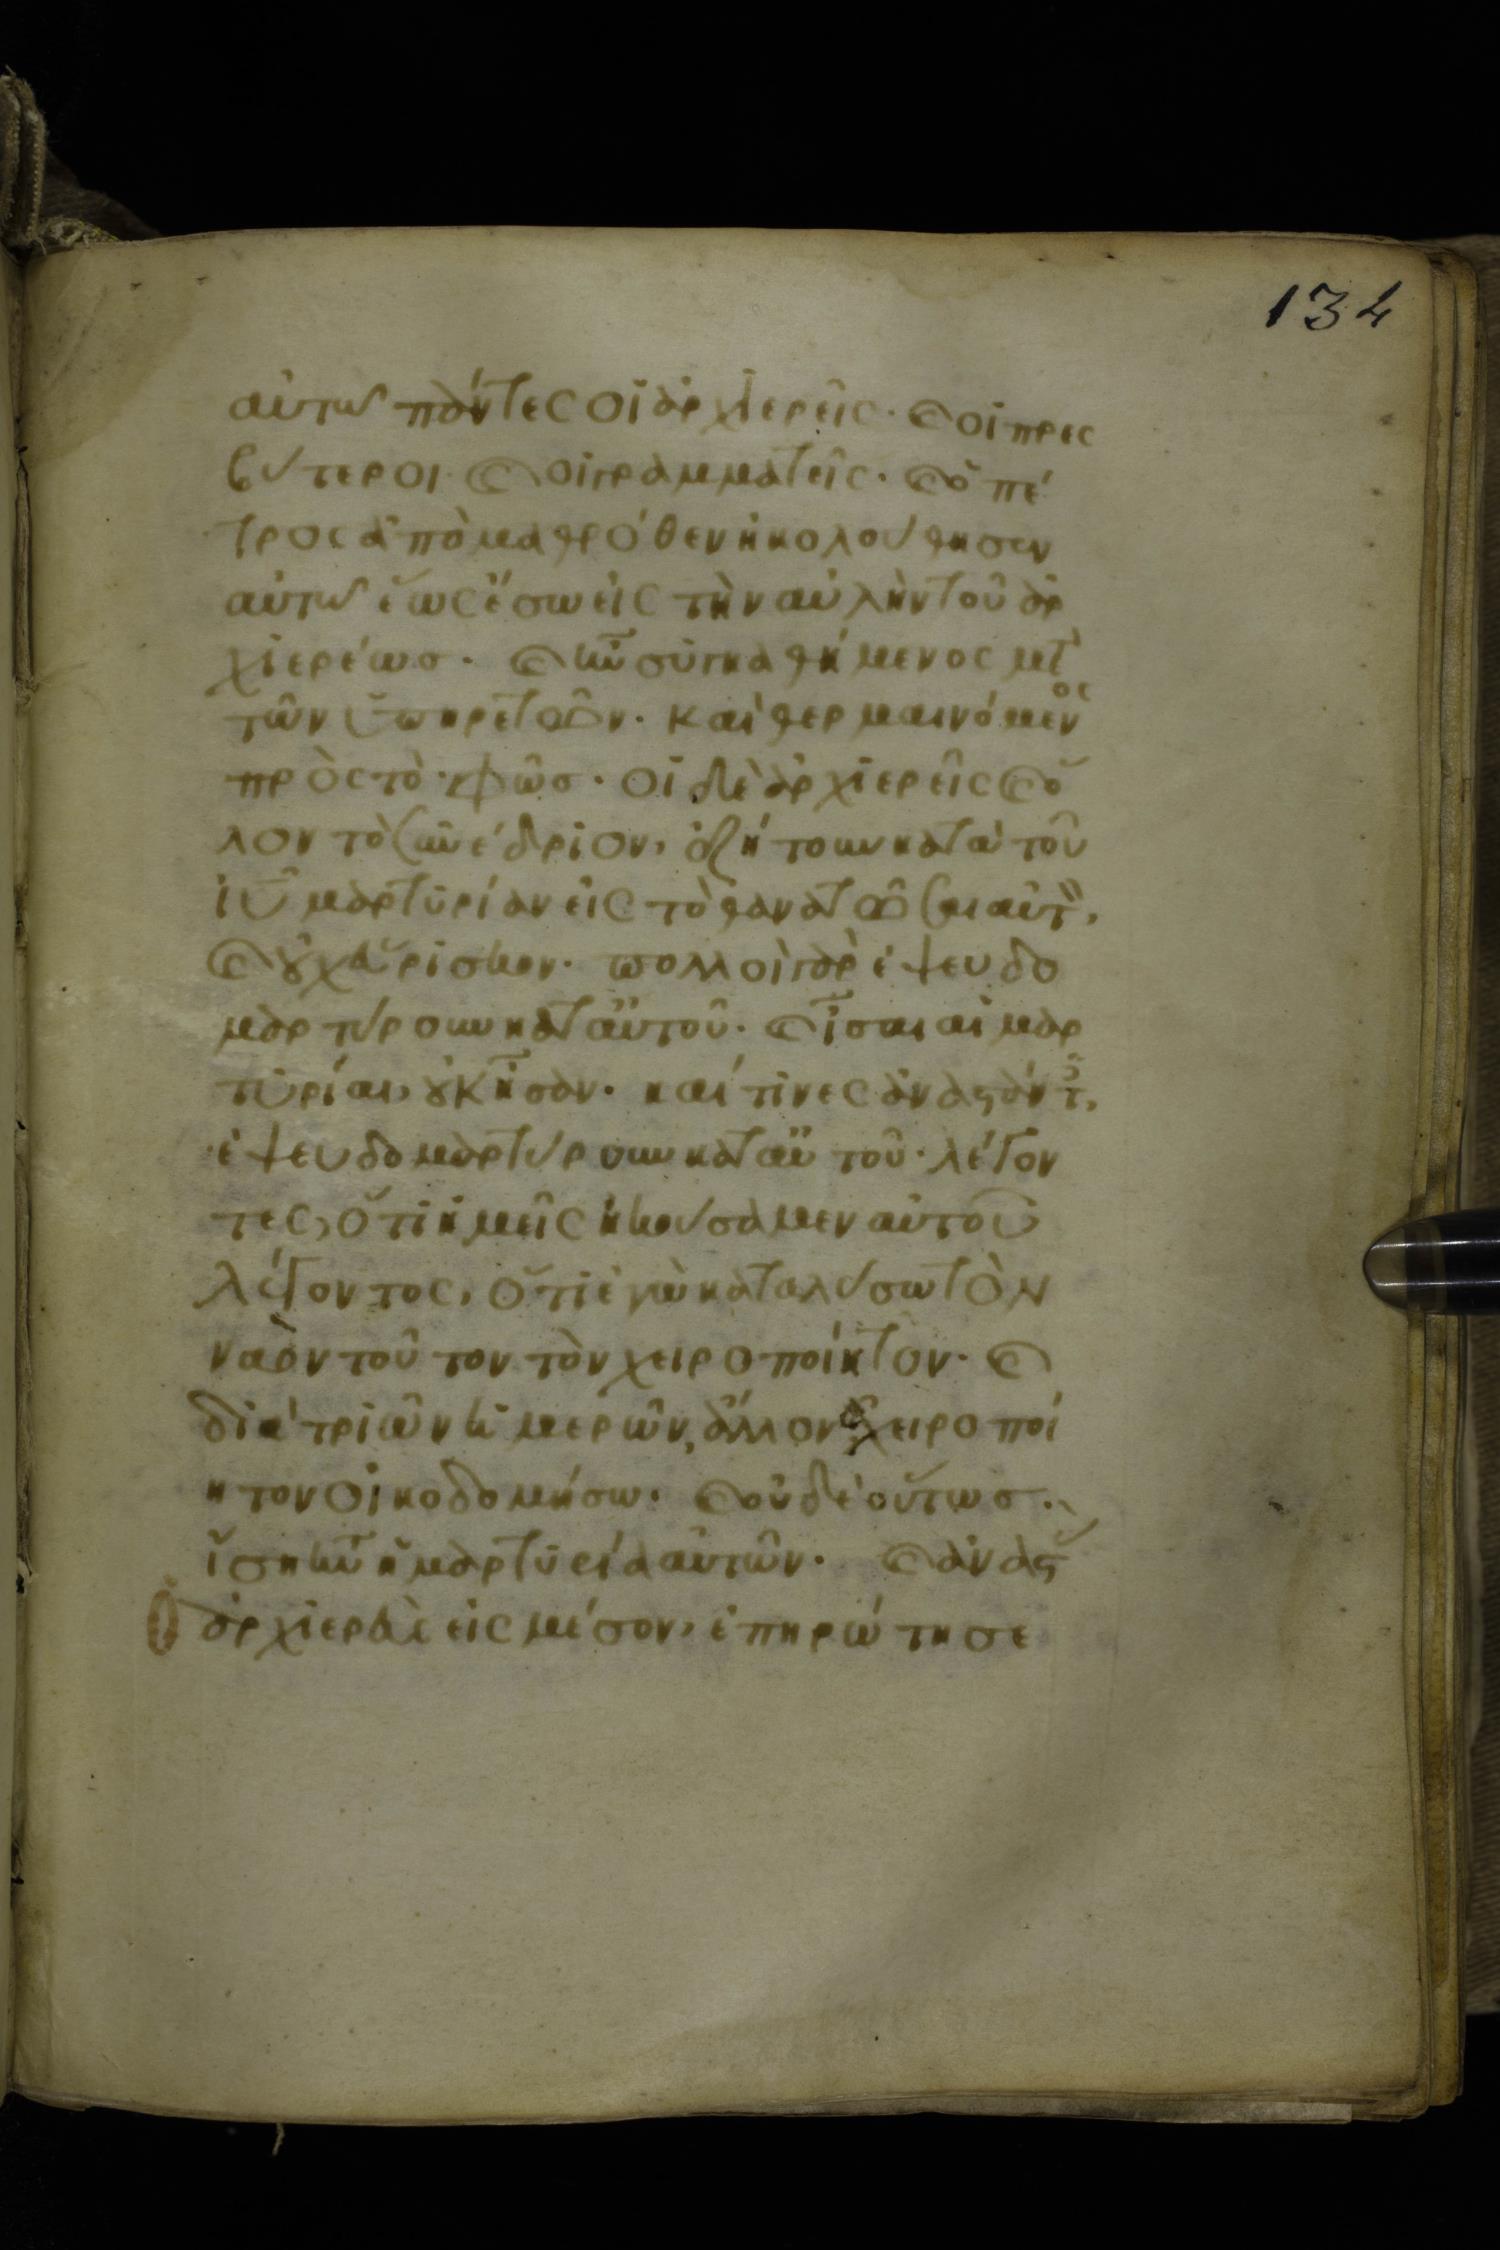 134
αὐτῶ πάντες οἱ ἀρχϊερεῖς· καὶ οἱ πρεσ
βύτεροι καὶ οἱ γραμματεῖς· καὶ ὁ πέ
τρος ἀπὸ μακρόθεν ἠκολούθησεν
αὐτῶ ἕως ἔσω εἰς τὴν αὐλὴν τοῦ ἀρ
χϊερέωσ· καὶ ἦν συγκαθήμενος μετ
τῶν ὑπηρετῶν· καὶ θερμαινόμενος
πρὸς τὸ φῶσ· οἱ δὲ ἀρχϊερεῖς καὶ ὅ
λον τὸ συνέδριον, ἐζήτουν κατὰ τοῦ
ἰῦ μαρτυρίαν εἰς τὸ θανατῶσαι αὐτὸν,
καὶ οὐχ εὕρισκον· πολλοὶ γὰρ ἐψευδο
μαρτύρουν κατ αὐτοῦ· καὶ ἶσαι αἱ μαρ
τυρίαι, οὐκ ἦσαν· καί τινες ἀναστάντες,
ἐψευδομαρτύρουν κατ αὐτοῦ· λέγον
τες, ὅτι ἡμεῖς ἠκούσαμεν αὐτοῦ
λέγοντος, ὅτι ἐγὼ καταλύσω τὸν
ναὸν τοῦτον τὸν χειροποίητον· καὶ
διὰ τριῶν ἡμερῶν, ἄλλον ἀχειροποί
ητον οἰκοδομήσω· καὶ οὐδὲ οὕτωσ·
ἴση ἦν ἡ μαρτυρία αὐτῶν· καὶ ἀναστὰς
ὁ ἀρχϊερεὺς εἰς μέσον, ἐπηρώτησε